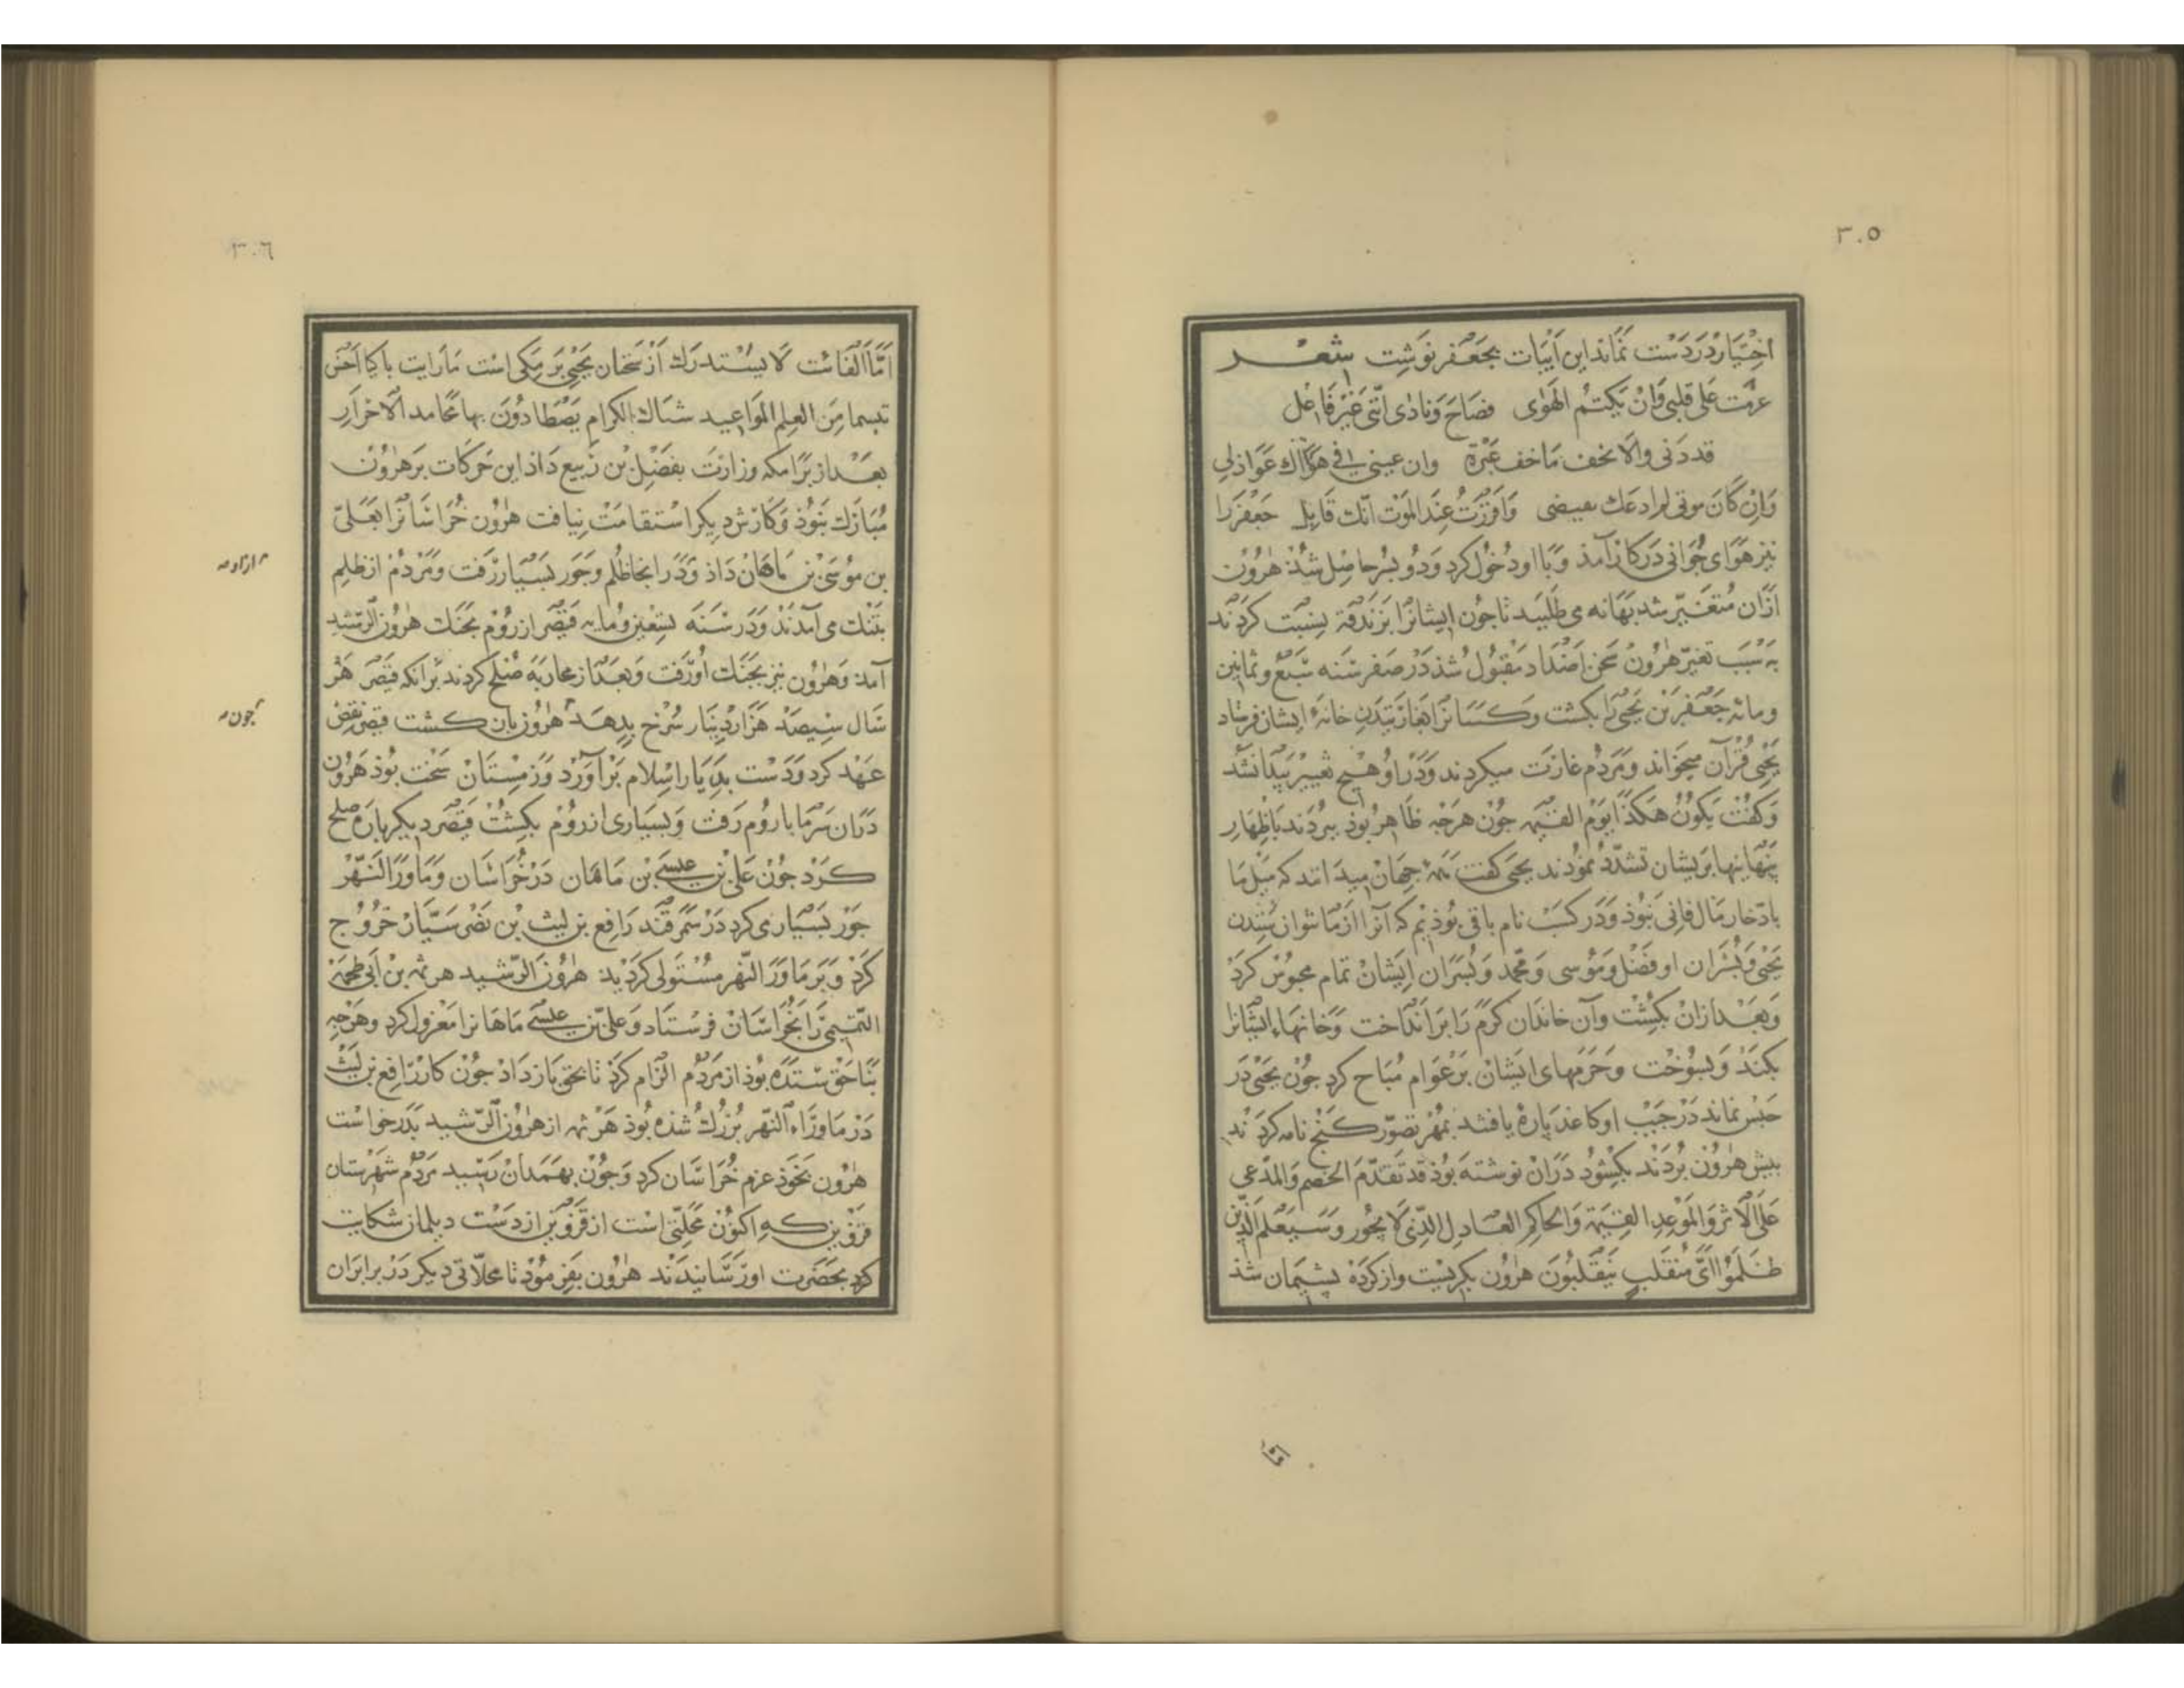 ٣٠٥
اختیار در دست نماند این ابیات بجعفر نوشت شعر
عزمت علی قلبی وان یکتم الهوی فصاح ونادی اننی غیر فاعل
وان عینی فی هواک عواذلی
وان کان موتی عند الموت انک قاتل جعفر را
نیز هوای جوانی در کار آمد و با او دخول کرد و دو پسر حاصل شذ هرون
ازان متغیّر شد بهانه می طلبید تا جون ایشانرا بزندقة نسبت کردند
به سبب تغیّر هرون سخن اضداد مقبول شذ در صفر سنه سبع و ثمانین
ومائه جعفر بن یحیی را بکشت و کسانرا بغارتیدن خانهٔ ایشان فرستاد
یحیی قرآن میخواند و مردم غارت میکردند و در او هیج تغییر پیدا نشد
و کفت یکون هکذا یوم القیمه جون هرجه ظاهر بوذ ببردند باظهار
پنهاینها بریشان تشدّد نموذند یحیی کفت همه جهان میدانند که میل ما
بادّخار مال فانی نبوذ و در کسب نام باقی بوذیم که آنرا از ما نتوان ستدن
یحیی و پسران او فضل و موسی و محمد و پسران ایشان تمام محبوس کرد
و بعد ازان بکشت و آن خاندان کرم را برانداخت و خانهاء ایشانرا
بکند و بسوخت و حرمهای ایشان بر عوام مباح کرد جون یحیی در
حبس نماند در جیب او کاغذ پارهٔ یافتند بمهر تصوّر کنج نامه کردند
بیش هرون بردند بکشود دران نوشته بوذ قد تقدّم الخصم والمدّعی
علی الاثر والموعد القیمة والحاکم العادل الذی لا یجور وسیعلم الذین
ظلموا ای منقلب ینقلبون هرون بکریست و از کرده پشیمان شذ
امّا
٣٠٦
امّا الفائت لا یستدرک از سخنان یحیی برمکی است ما رایت باکیا احسن
تبسما من القلم المواعید شباک الکرام یصطادون بها محامد الاخرار
بعد از برامکه وزارت بفضل بن ربیع داذ این حرکات بر هرون
مبارک نبوذ و کارش دیکر استقامت نیافت هرون خراسانرا بعلیّ
بن موسی بن ماهان داذ و در انجا ظلم و جور بسیار رفت و مردم از ظلم
بتنک می آمدند و در سنه تسعین ومایه قیصر از روم بجنک هرون الرّشید
آمد و هرون نیز بجنک او رفت و بعد از محاربه صلح کردند برانکه قیصر هر
سال سیصد هزار دینار سرخ بدهد هرون باز کشت قیصر نقض
عهد کرد و دست بدیار اسلام برآورد و زمستان سخت بوذ هرون
دران سرما باروم رفت و بسیاری از روم بکشت قیصر دیکر باره صلح
کرد جون علی بن عیسی بن ماهان در خراسان و ماوراالنّهر
جور بسیاری کرد در سمرقند رافع بن لیث بن نصر سیّار خروج
کرد و بر ماورا النّهر مستولی کردید هرون الرّشید هرثمه بن ابی طحمة
التمیمیّ را بخراسان فرستاد و علیّ بن عیسی ماهانرا معزول کرد و هرجه
بناحق ستده بوذ از مردم الزام کرد تا بحق باز داد جون کار رافع بن لیث
در ماوراء النّهر بزرک شذه بوذ هرثمه از هرون الرّشید بدر خواست
هرون بخوذ عزم خراسان کرد و جون بهمدان رسید مردم شهرستان
قزوین که اکنون محلّتی است از قزوین از دست دیلمان شکایت
کرد بحضرت او رسانیدند هرون بفرموذ تا محلّاتی دیکر در برابر ان
جون